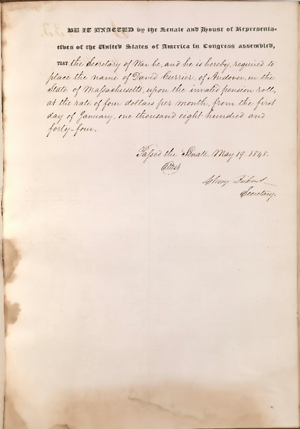 BE IT ENACTED by the Senate and House of Representa-
tives of the United States of America in Congress assembled,
THAT the Secretary of War be, and he is hereby, required to
place the name of David Currier, of Andover, in the
State of Massachusetts, upon the invalid pension roll,
at the rate of four dollars per month, from the first
day of January, one thousand eight hundred and
forty-four.
Passed the Senate, May 19. 1848.
Attest
Secretary.